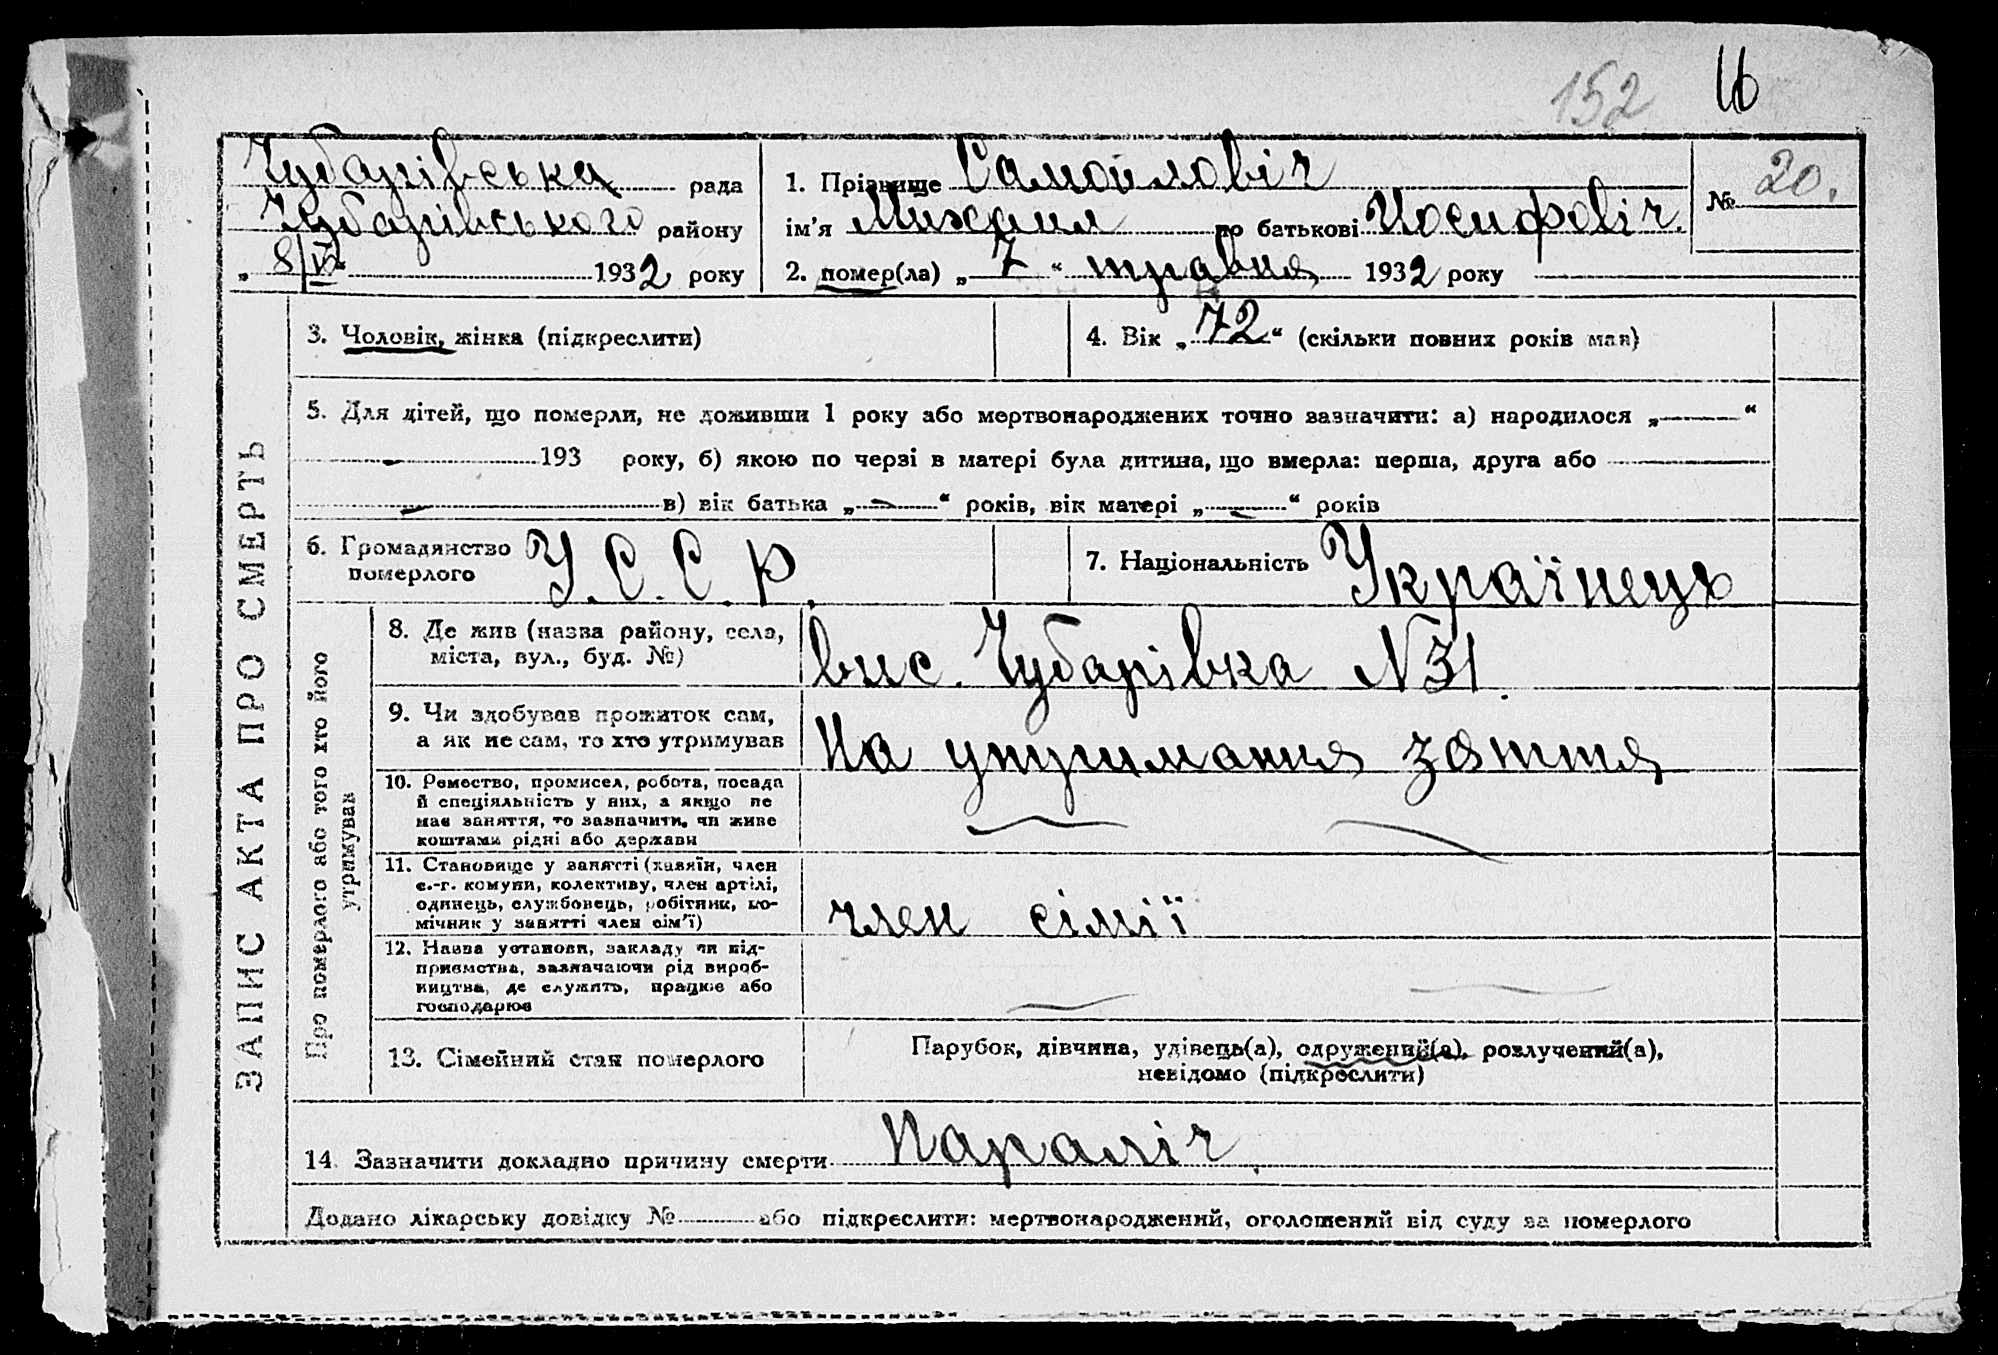 152 16
Чубарівська рада
Чубарівського району
„ 8/V “ 1932 року
1. Прізвище Самойловіч
ім'я Михаил по батькові Иосифовіч.
2. помер(ла) „ 7 “ травня 1932 року
№ 20.
ЗАПИС АКТА ПРО СМЕРТЬ
3. Чоловік, жінка (підкреслити)
4. Вік „ 72 “ (скільки повних років мав)
5. Для дітей, що померли, не доживши 1 року або мертвонароджених точно зазначити: а) народилося „ — “
193 року, б) якою по черзі в матері була дитина, що вмерла: перша, друга або
в) вік батька „ — “ років, вік матері „ — “ років
6. Громадянство
померлого У.С.С.Р.
7. Національність Українець
Про померлого або того хто його
утримував
8. Де жив (назва району, села,
міста, вул., буд. №)
вис. Чубарівка N31.
9. Чи здобував прожиток сам,
а як не сам, то хто утримував
На утримання зяття
10. Ремество, промисел, робота, посада
й спеціяльність у них, а якщо не
мав заняття, то зазначити, чи живе
коштами рідні або держави
11. Становище у занятті (хазяїн, член
с.-г. комуни, колективу, член артілі,
одинець, службовець, робітник, по-
мічник у занятті член сім'ї)
член сімії
12. Назва установи, закладу чи під-
приємства, зазначаючи рід вироб-
ництва, де служить, працює або
господарює
13. Сімейний стан померлого
Парубок, дівчина, удівець(а), одружений(а), розлучений(а),
невідомо (підкреслити)
14. Зазначити докладно причину смерти Параліч.
Додано лікарську довідку № або підкреслити: мертвонароджений, оголошений від суду за померлого